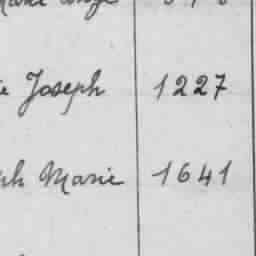 Joseph 1227
ph Marie 1641